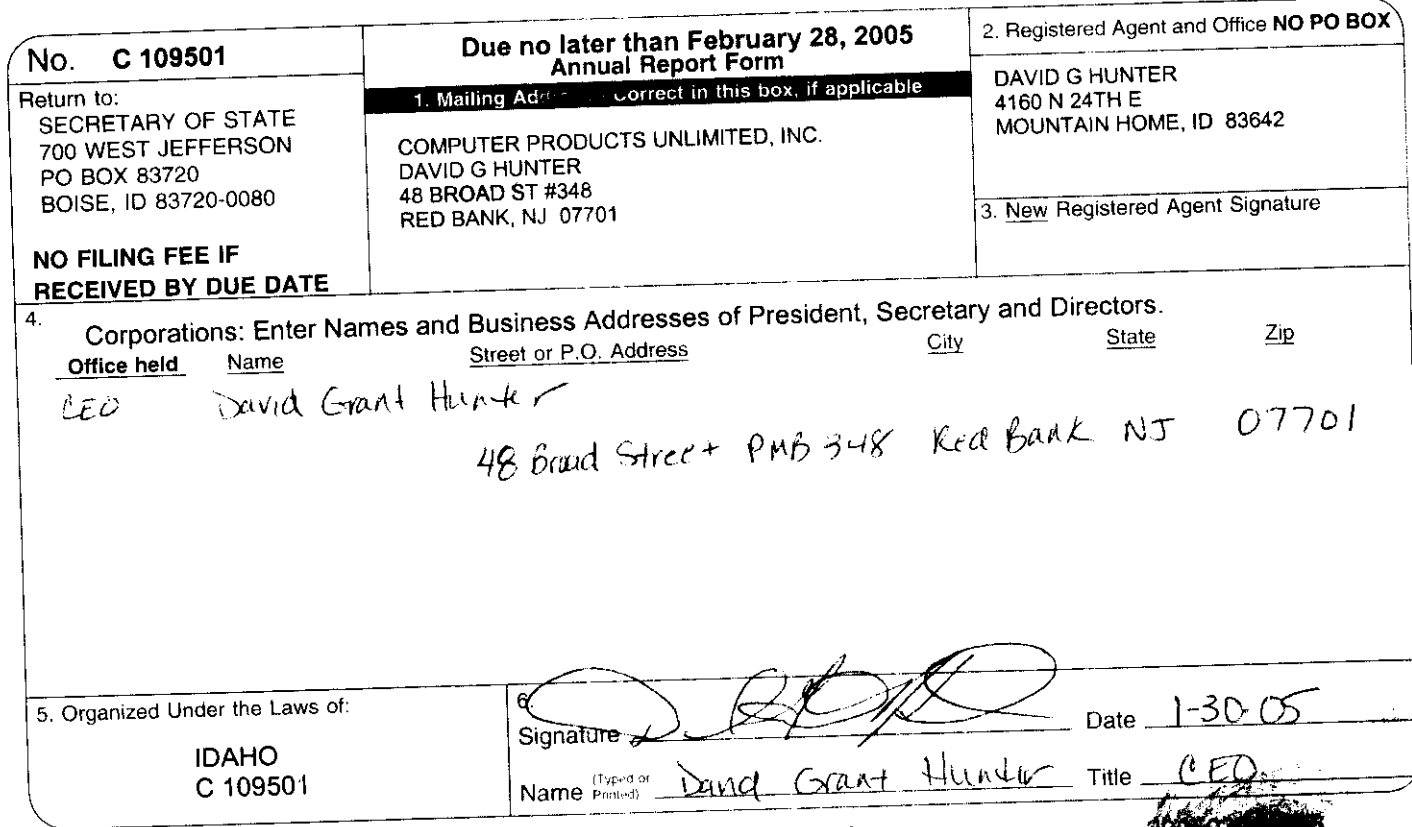 No. C 109501
Return to:
SECRETARY OF STATE
700 WEST JEFFERSON
PO BOX 83720
BOISE, ID 83720-0080
NO FILING FEE IF
RECEIVED BY DUE DATE
Due no later than February 28, 2005
Annual Report Form
1. Mailing Correct in this box, if applicable
COMPUTER PRODUCTS UNLIMITED, INC.
DAVID G HUNTER
48 BROAD ST #348
RED BANK, NJ 07701
2. Registered Agent and Office NO PO BOX
DAVID G HUNTER
4160 N 24TH E
MOUNTAIN HOME, ID 83642
3. New Registered Agent Signature
4.
Corporations: Enter Names and Business Addresses of President, Secretary and Directors.
Office held Name Street or P.O. Address City State Zip
CEO David Grant Hunter
48 Broad Street PMB 348 Red Bank NJ 07701
5. Organized Under the Laws of:
IDAHO
C 109501
6.
Signature Date 1-30-05
Name (Typed or Printed) David Grant Hunter Title CEO